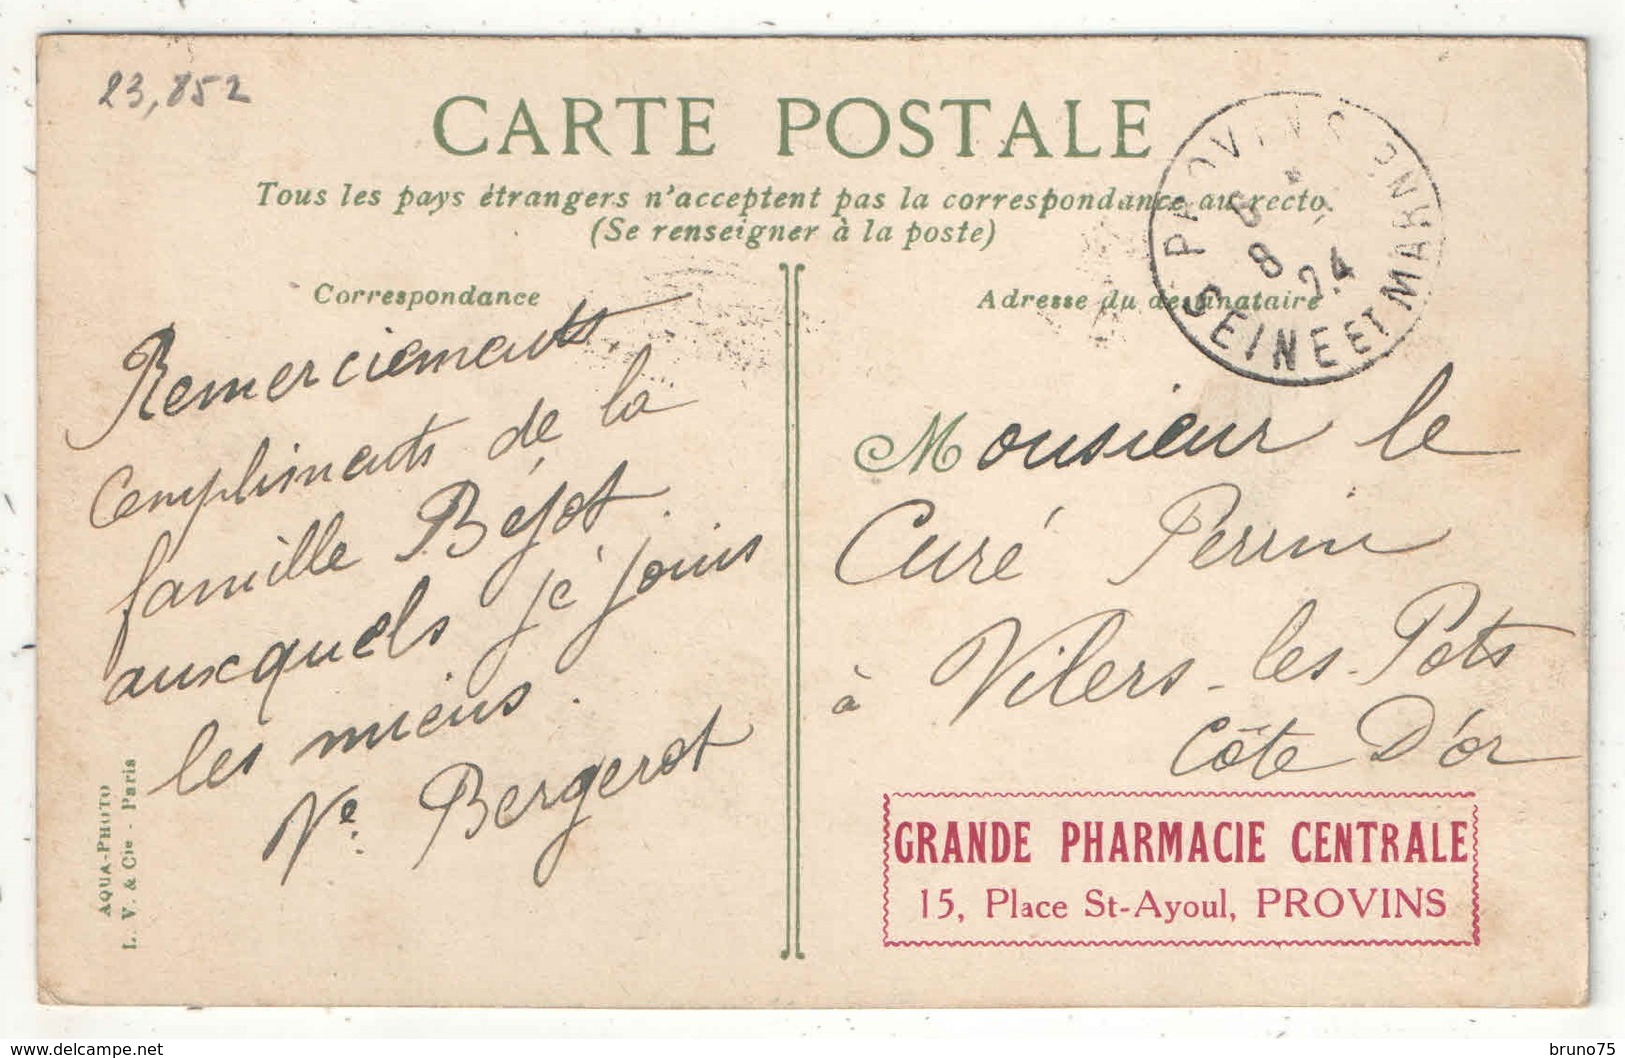 23,852
CARTE POSTALE
Tous les pays étrangers n'acceptent pas la correspondance au recto.
(Se renseigner à la poste)
PROVINS
8 24
SEINE ET MARNE
Correspondance
Remerciements.
Compliments de la
famille Béjot.
auxquels je joins
les miens.
Ve. Bergerot
AQUA-PHOTO
L. V. & Cie - Paris
Adresse du destinataire
Monsieur le
Curé Perrin
à Vilers-les-Pots
Côte D'or
GRANDE PHARMACIE CENTRALE
15, Place St-Ayoul, PROVINS
www.delcampe.net
bruno75